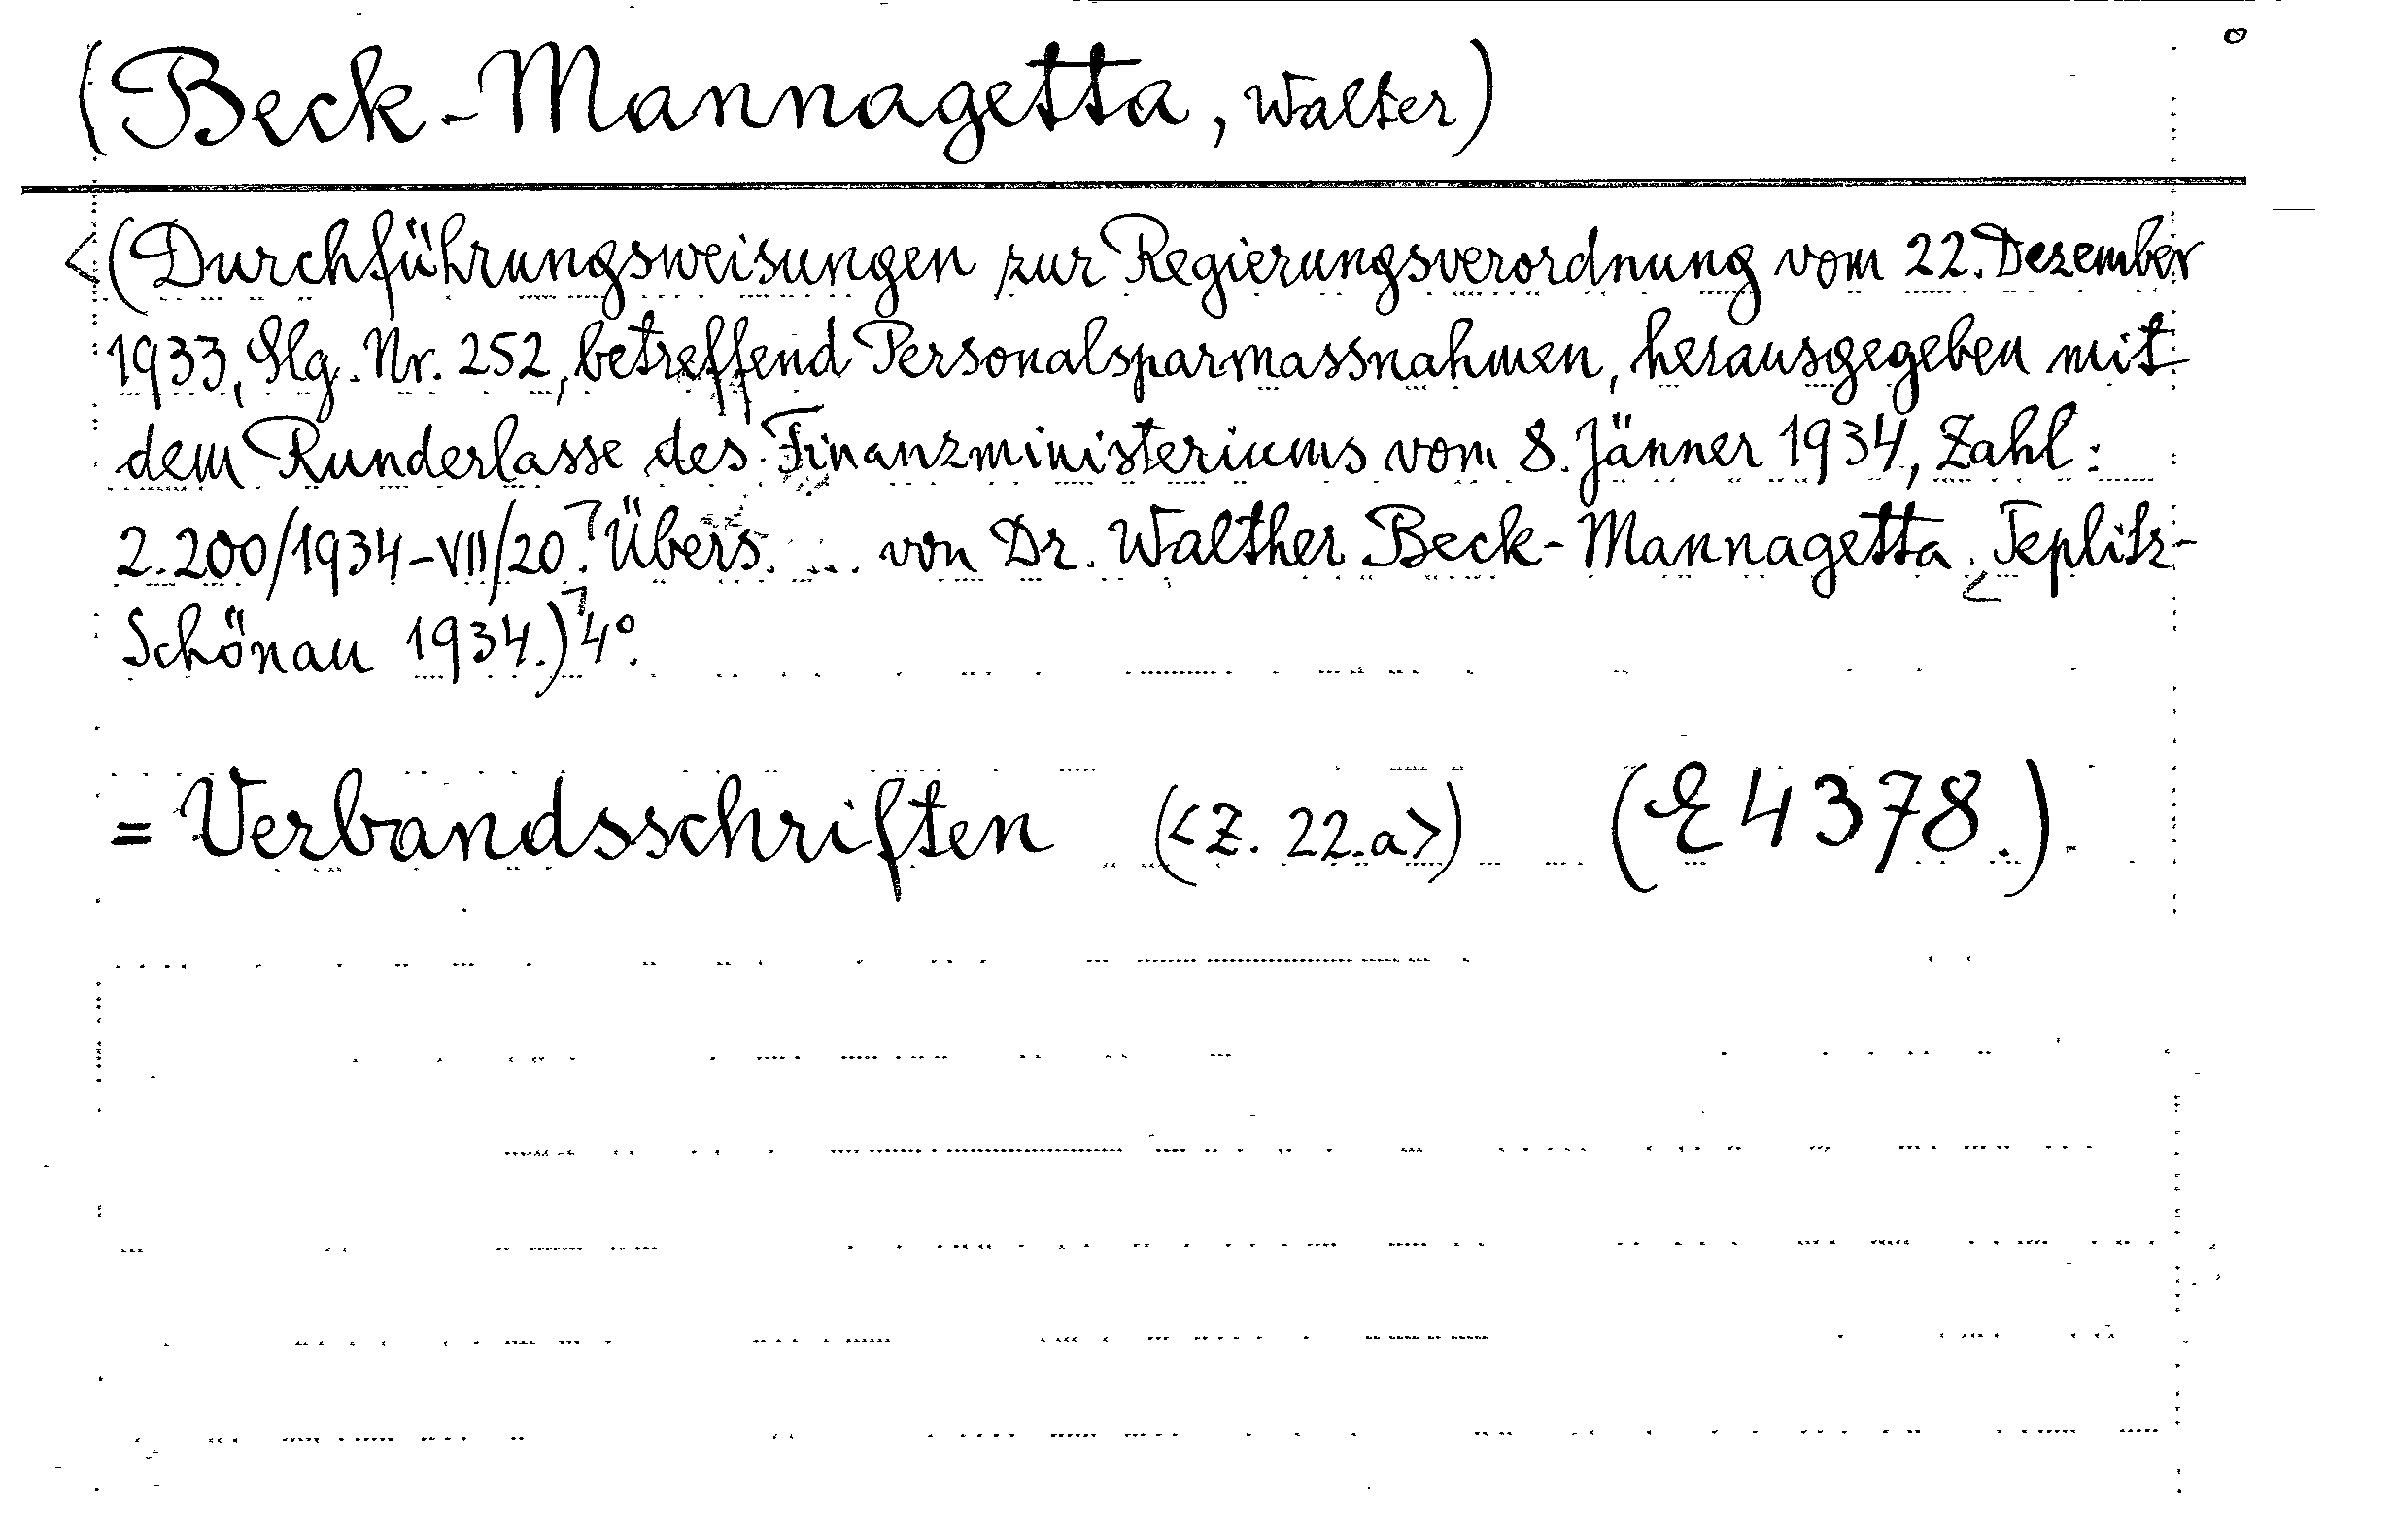 (Beck-Mannagetta, Walter)
<(Durchführungsweisungen zur Regierungsverordnung vom 22. Dezember
1933, Slg. Nr. 252, betreffend Personalsparmassnahmen, herausgegeben mit
dem Runderlasse des Finanzministeriums vom 8. Jänner 1934, Zahl:
2.200/1934-VII/20.⁊ Übers. ... von Dr. Walther Beck-Mannagetta. Teplitz-
Schönau 1934.)⁊ 4°.
= Verbandsschriften (<Z. 22.a>) (E 4378.)